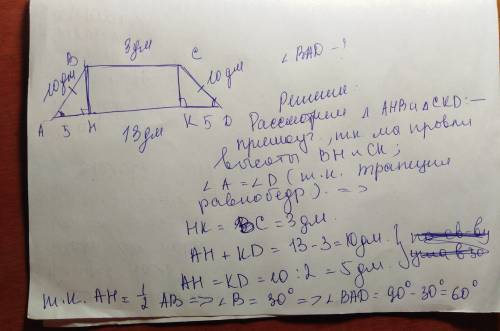 3дм
B
C
10дм
10дм
∠BAD - ?
A
5
H
K
5
D
13дм
Решение:
Рассмотрим △ AHB и △CKD: —
прямоуг., т.к. мы провели
высоты BH и CK;
∠A = ∠D (т.к. трапеция
равнобедр). =>
HK = BC = 3дм.
AH + KD = 13 - 3 = 10дм.
AH = KD = 10 : 2 = 5дм.
т.к. AH = 1/2 AB => ∠B = 30° => ∠BAD = 90° - 30° = 60°